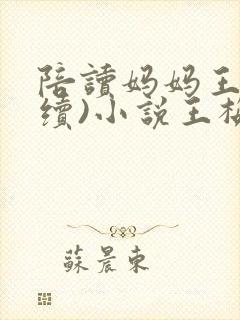 陪讀媽媽王
續)小說王
蘇晨東